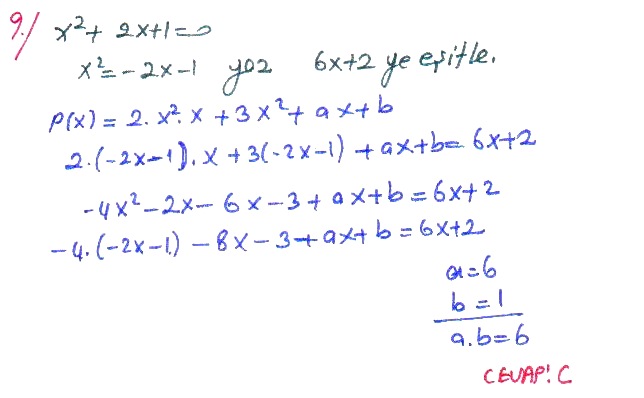 9./ x²+ 2x+1=0
x²=-2x-1 yaz 6x+2 ye eşitle.
P(x) = 2. x². x + 3x²+ ax+b
2.(-2x-1). x + 3(-2x-1) + ax+b= 6x+2
-4x²-2x- 6x-3+ ax+b = 6x+2
-4. (-2x-1) - 8x-3+ax+b = 6x+2
a=6
b =1
a.b=6
CEVAP! C